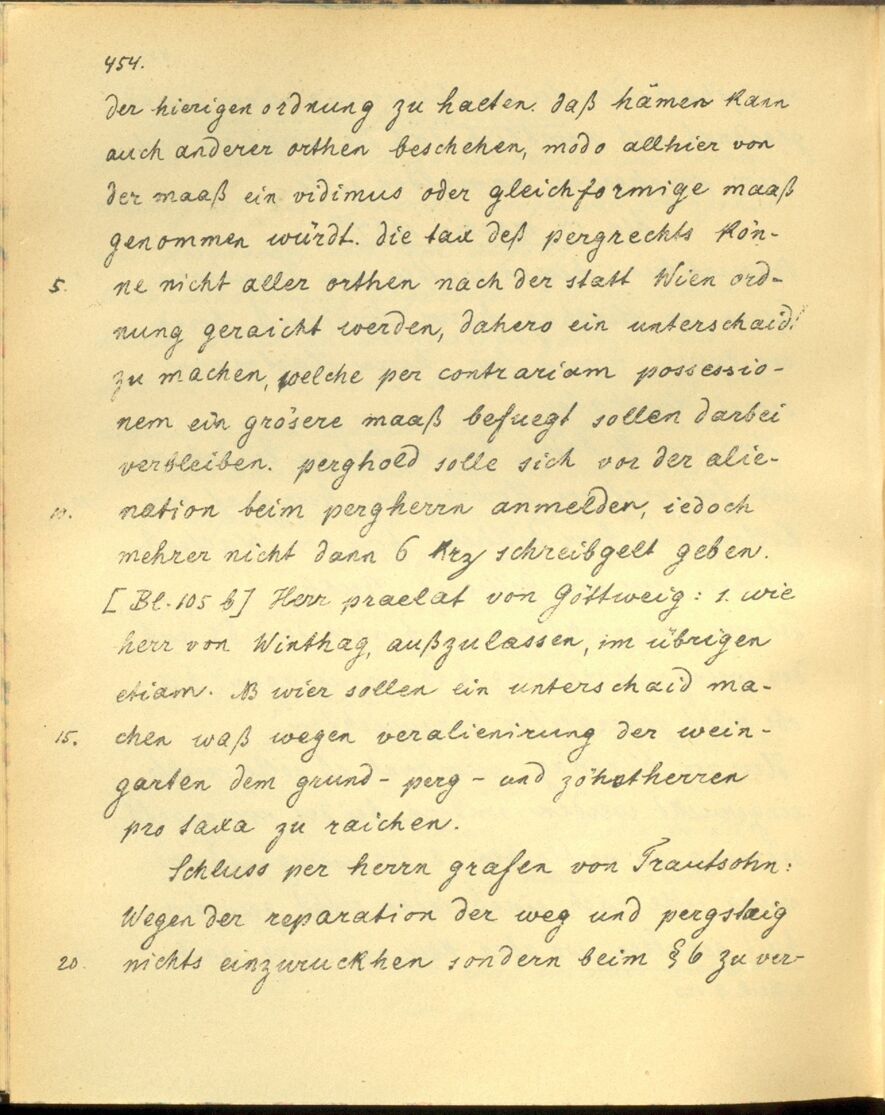 454.
der hierigen ordnung zu halten. daß hämen kann
auch anderer orthen beschehen, modo allhier von
der maaß ein vidimus oder gleichformige maaß
genommen würdt. die tax deß pergrechts kön-
5. ne nicht aller orthen nach der statt Wien ord-
nung geraicht werden, dahero ein unterschaid
zu machen, welche per contrariam possessio-
nem ein grösere maaß befuegt sollen darbei
verbleiben. perghold solle sich vor der alie-
10. nation beim pergherrn anmelden, iedoch
mehrer nicht dann 6 krz schreibgelt geben.
[Bl. 105 b] Herr praelat von Göttweig: 1. wie
herr von Winthag, außzulassen, im übrigen
etiam. NB wier sollen ein unterschaid ma-
15. chen waß wegen veralienirung der wein-
garten dem grund- perg- und zöhetherren
pro taxa zu raichen.
Schluss per herrn grafen von Trautsohn:
Wegen der reparation der weg und pergstaig
20. nichts einzuruckhen sondern beim § 6 zu ver-